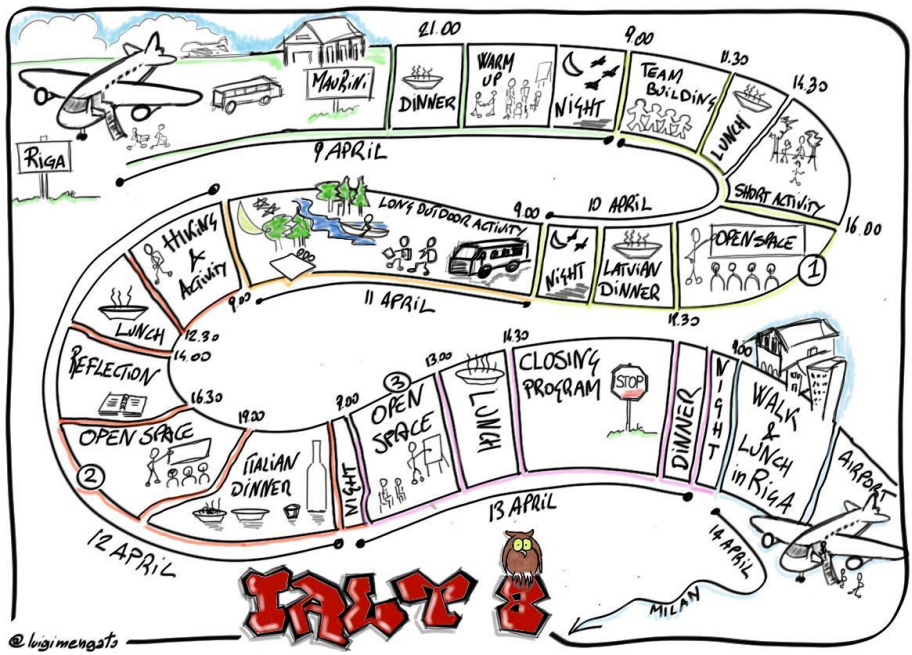 RIGA
MAURINI
21.00
DINNER
WARM
UP
NIGHT
9.00
TEAM
BUILDING
11.30
LUNCH
14.30
SHORT ACTIVITY
9 APRIL
16.00
OPEN SPACE
1
19.30
LATVIAN
DINNER
NIGHT
10 APRIL
9.00
LONG OUTDOOR ACTIVITY
11 APRIL
9.00
HIKING
&
ACTIVITY
12.30
LUNCH
14.00
REFLECTION
16.30
OPEN SPACE
2
19.00
ITALIAN
DINNER
NIGHT
12 APRIL
9.00
3
OPEN
SPACE
13.00
LUNCH
14.30
CLOSING
PROGRAM
STOP
DINNER
NIGHT
13 APRIL
9.00
WALK
&
LUNCH
in RIGA
AIRPORT
14 APRIL
MILAN
IALT 8
@luigimengato